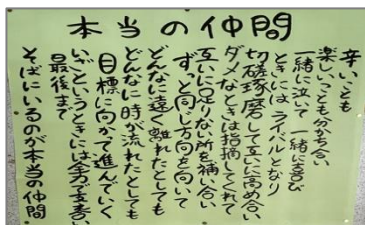 本当の仲間
辛いことも
楽しいことも分かち合い
一緒に泣いて 一緒に喜び
ときにはライバルとなり
切磋琢磨して互いに高め合い
ダメなときは指摘してくれて
互いに足りない所を補い合い
ずっと同じ方向を向いて
どんなに遠く離れたとしても
どんなに時が流れたとしても
目標に向かって進んでいく
いざというときには全力で支え合い
最後まで
そばにいるのが本当の仲間